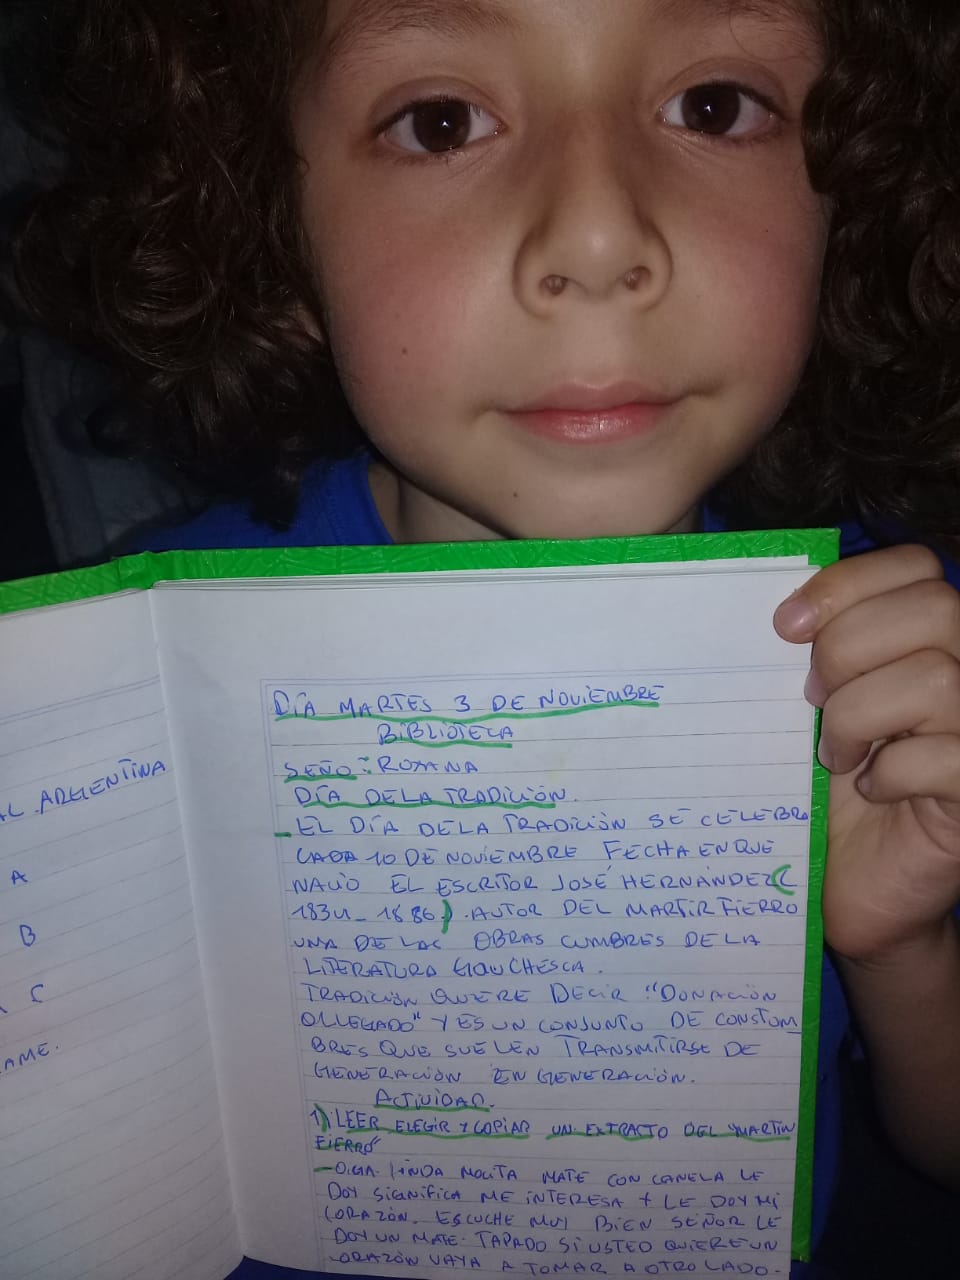 AL ARGENTINA
A
B
C
AME.
DÍA MARTES 3 DE NOVIEMBRE
BIBLIOTECA
SEÑO: ROXANA
DÍA DE LA TRADICIÓN.
- EL DÍA DE LA TRADICIÓN SE CELEBRA
CADA 10 DE NOVIEMBRE FECHA EN QUE
NACIO EL ESCRITOR JOSÉ HERNÁNDEZ (
1834 - 1886). AUTOR DEL MARTIR FIERRO
UNA DE LAS OBRAS CUMBRES DE LA
LITERATURA GAUCHESCA.
TRADICIÓN QUIERE DECIR "DONACIÓN
O LLEGADO" Y ES UN CONJUNTO DE CONSTUM_
BRES QUE SUELEN TRANSMITIRSE DE
GENERACIÓN EN GENERACIÓN.
ACTIVIDAD.
1) LEER ELEGIR Y COPIAR UN EXTRACTO DEL "MARTIN
FIERRO"
- OIGA LINDA MOCITA MATE CON CANELA LE
DOY SIGNIFICA ME INTERESA Y LE DOY MI
CORAZÓN. ESCUCHE MUY BIEN SEÑOR LE
DOY UN MATE TAPADO SI USTED QUIERE UN
CORAZÓN VAYA A TOMAR A OTRO LADO.